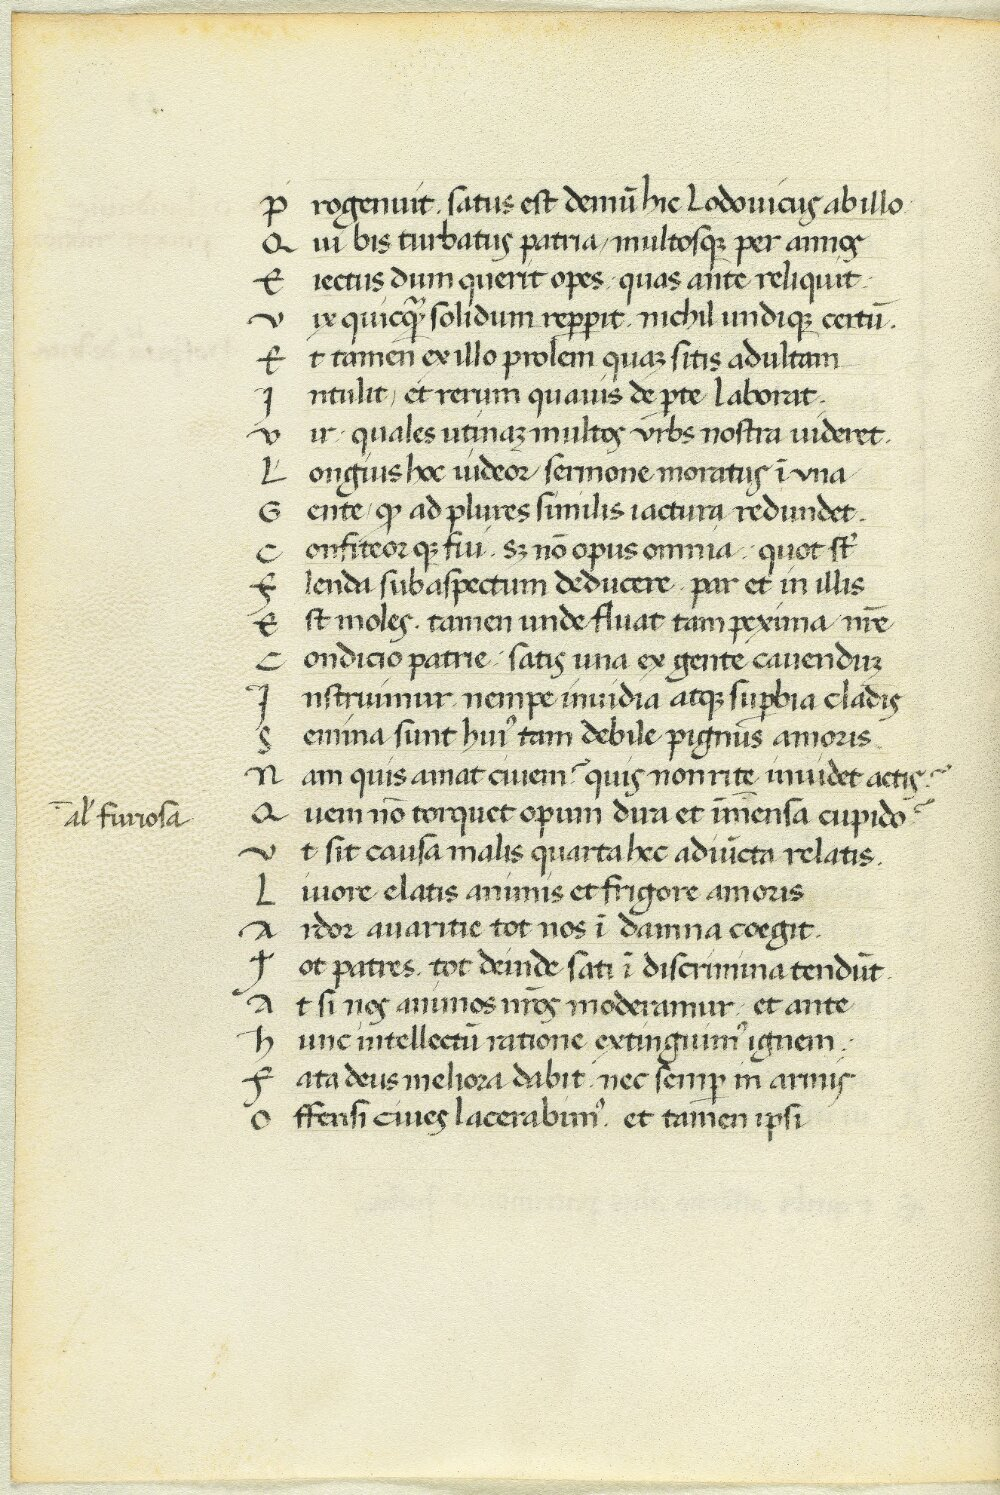 P rogenuit. satus est demū hic Lodouicus ab illo
Q ui bis turbatus patria / multosqꝫ per annos
E iectus dum querit opes. quas ante reliquit.
V ix quicꝙ̃ solidum rep̱pit. nichil undiqꝫ certū.
E t tamen ex illo prolem quaꝫ sitis adultam
I ntulit / et rerum quauis de ꝑte laborat.
V ir. quales utinaꝫ multos vrbs nostra uideret.
L ongius hoc uideor / sermone moratus ī vna
G ente / ꝙ ad plures similis iactura redundet.
C onfiteor qꝫ fui. sꝫ nō opus omnia. quot st̄
F lenda sub aspectum deducere. par et in illis
E st moles. tamen unde fluat tam pexima / nr̄e
C ondicio patrie. satis una ex gente cauenduꝫ
I nstruimur. nempe inuidia atqꝫ suꝑbia cladis
S emina sunt huiꝰ tam debile pignus amoris
N am quis amat ciuem? quis non rite inuidet actis?
al' furiosa
Q uem nō torquet opum dira et īmensa cupido?
V t sit causa malis quarta hec adiūcta relatis.
L iuore elatis animis et frigore amoris
A rdor auaritie tot nos ī damna coegit.
T ot patres. tot deinde sati ī discrimina tendūt.
A t si nos animos nr̄os moderamur. et ante
H unc intellectū ratione extinguimꝰ ignem.
F ata deus meliora dabit. nec semꝑ in armis
O ffensi ciues lacerabimꝰ. et tamen ipsi